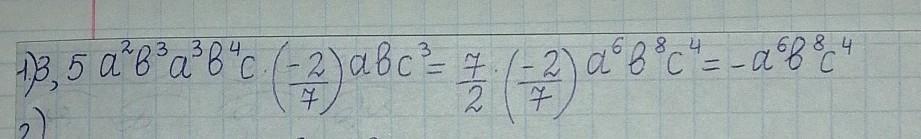 1) 3,5 a²b³a³b⁴c · (-2/7) abc³ = 7/2 · (-2/7) a⁶b⁸c⁴ = -a⁶b⁸c⁴
2)